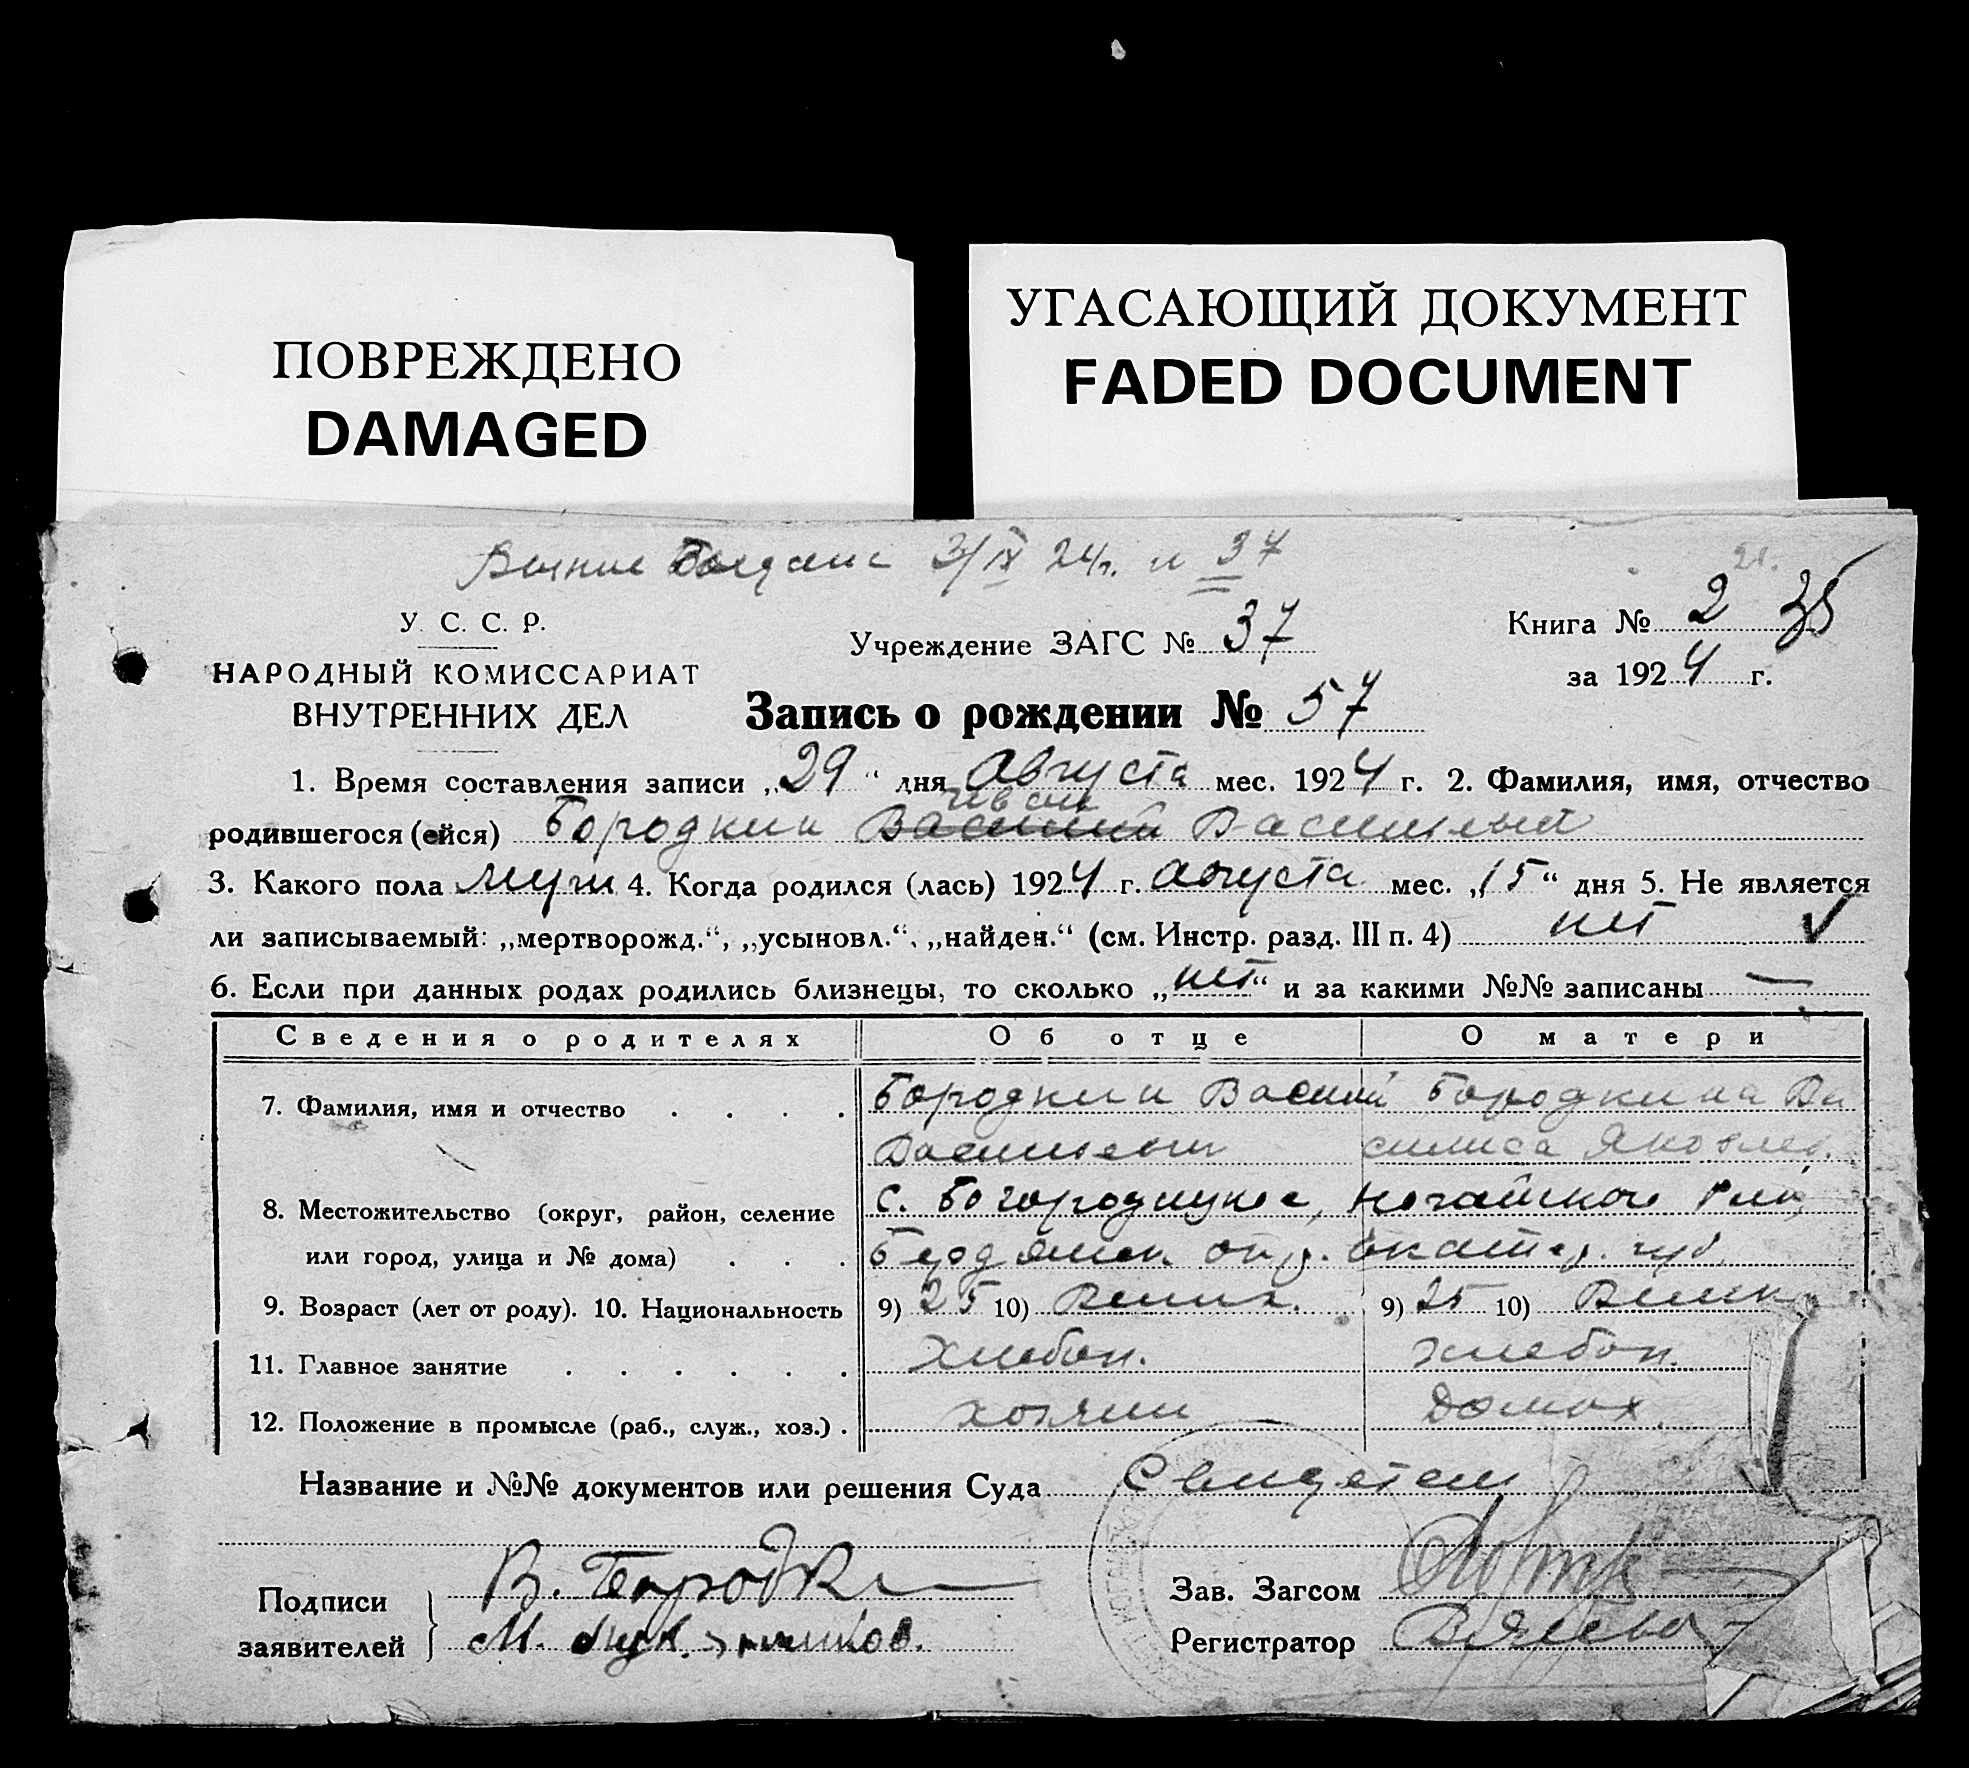 ПОВРЕЖДЕНО
DAMAGED
УГАСАЮЩИЙ ДОКУМЕНТ
FADED DOCUMENT
3/IX 24г. 37
21.
У. С. С. Р.
НАРОДНЫЙ КОМИССАРИАТ
ВНУТРЕННИХ ДЕЛ
Учреждение ЗАГС № 37
Книга № 2 35
за 1924 г.
Запись о рождении № 57
1. Время составления записи „29“ дня Августа мес. 1924 г. 2. Фамилия, имя, отчество
Иван
родившегося (ейся) Бородкин Василий Васильевич
3. Какого пола муж 4. Когда родился (лась) 1924 г. Августа мес. „15“ дня 5. Не является
ли записываемый: „мертворожд.“, „усыновл.“, „найден.“ (см. Инстр. разд. III п. 4) нет
6. Если при данных родах родились близнецы, то сколько „нет“ и за какими №№ записаны —
Сведения о родителях Об отце О матери
7. Фамилия, имя и отчество Бородкин Василий Бородкина Ва
Васильевич силиса Яковлев.
8. Местожительство (округ, район, селение с. Богородицкое,
или город, улица и № дома) Бердянск. окр. Екатер. губ.
9. Возраст (лет от роду). 10. Национальность 9) 25 10) Велик. 9) 25 10) Велик
11. Главное занятие хлебоп. хлебоп.
12. Положение в промысле (раб., служ., хоз.) хозяин домох.
Название и №№ документов или решения Суда Свидетели
Подписи
заявителей
В. Бородк
М.
Зав. Загсом
Регистратор